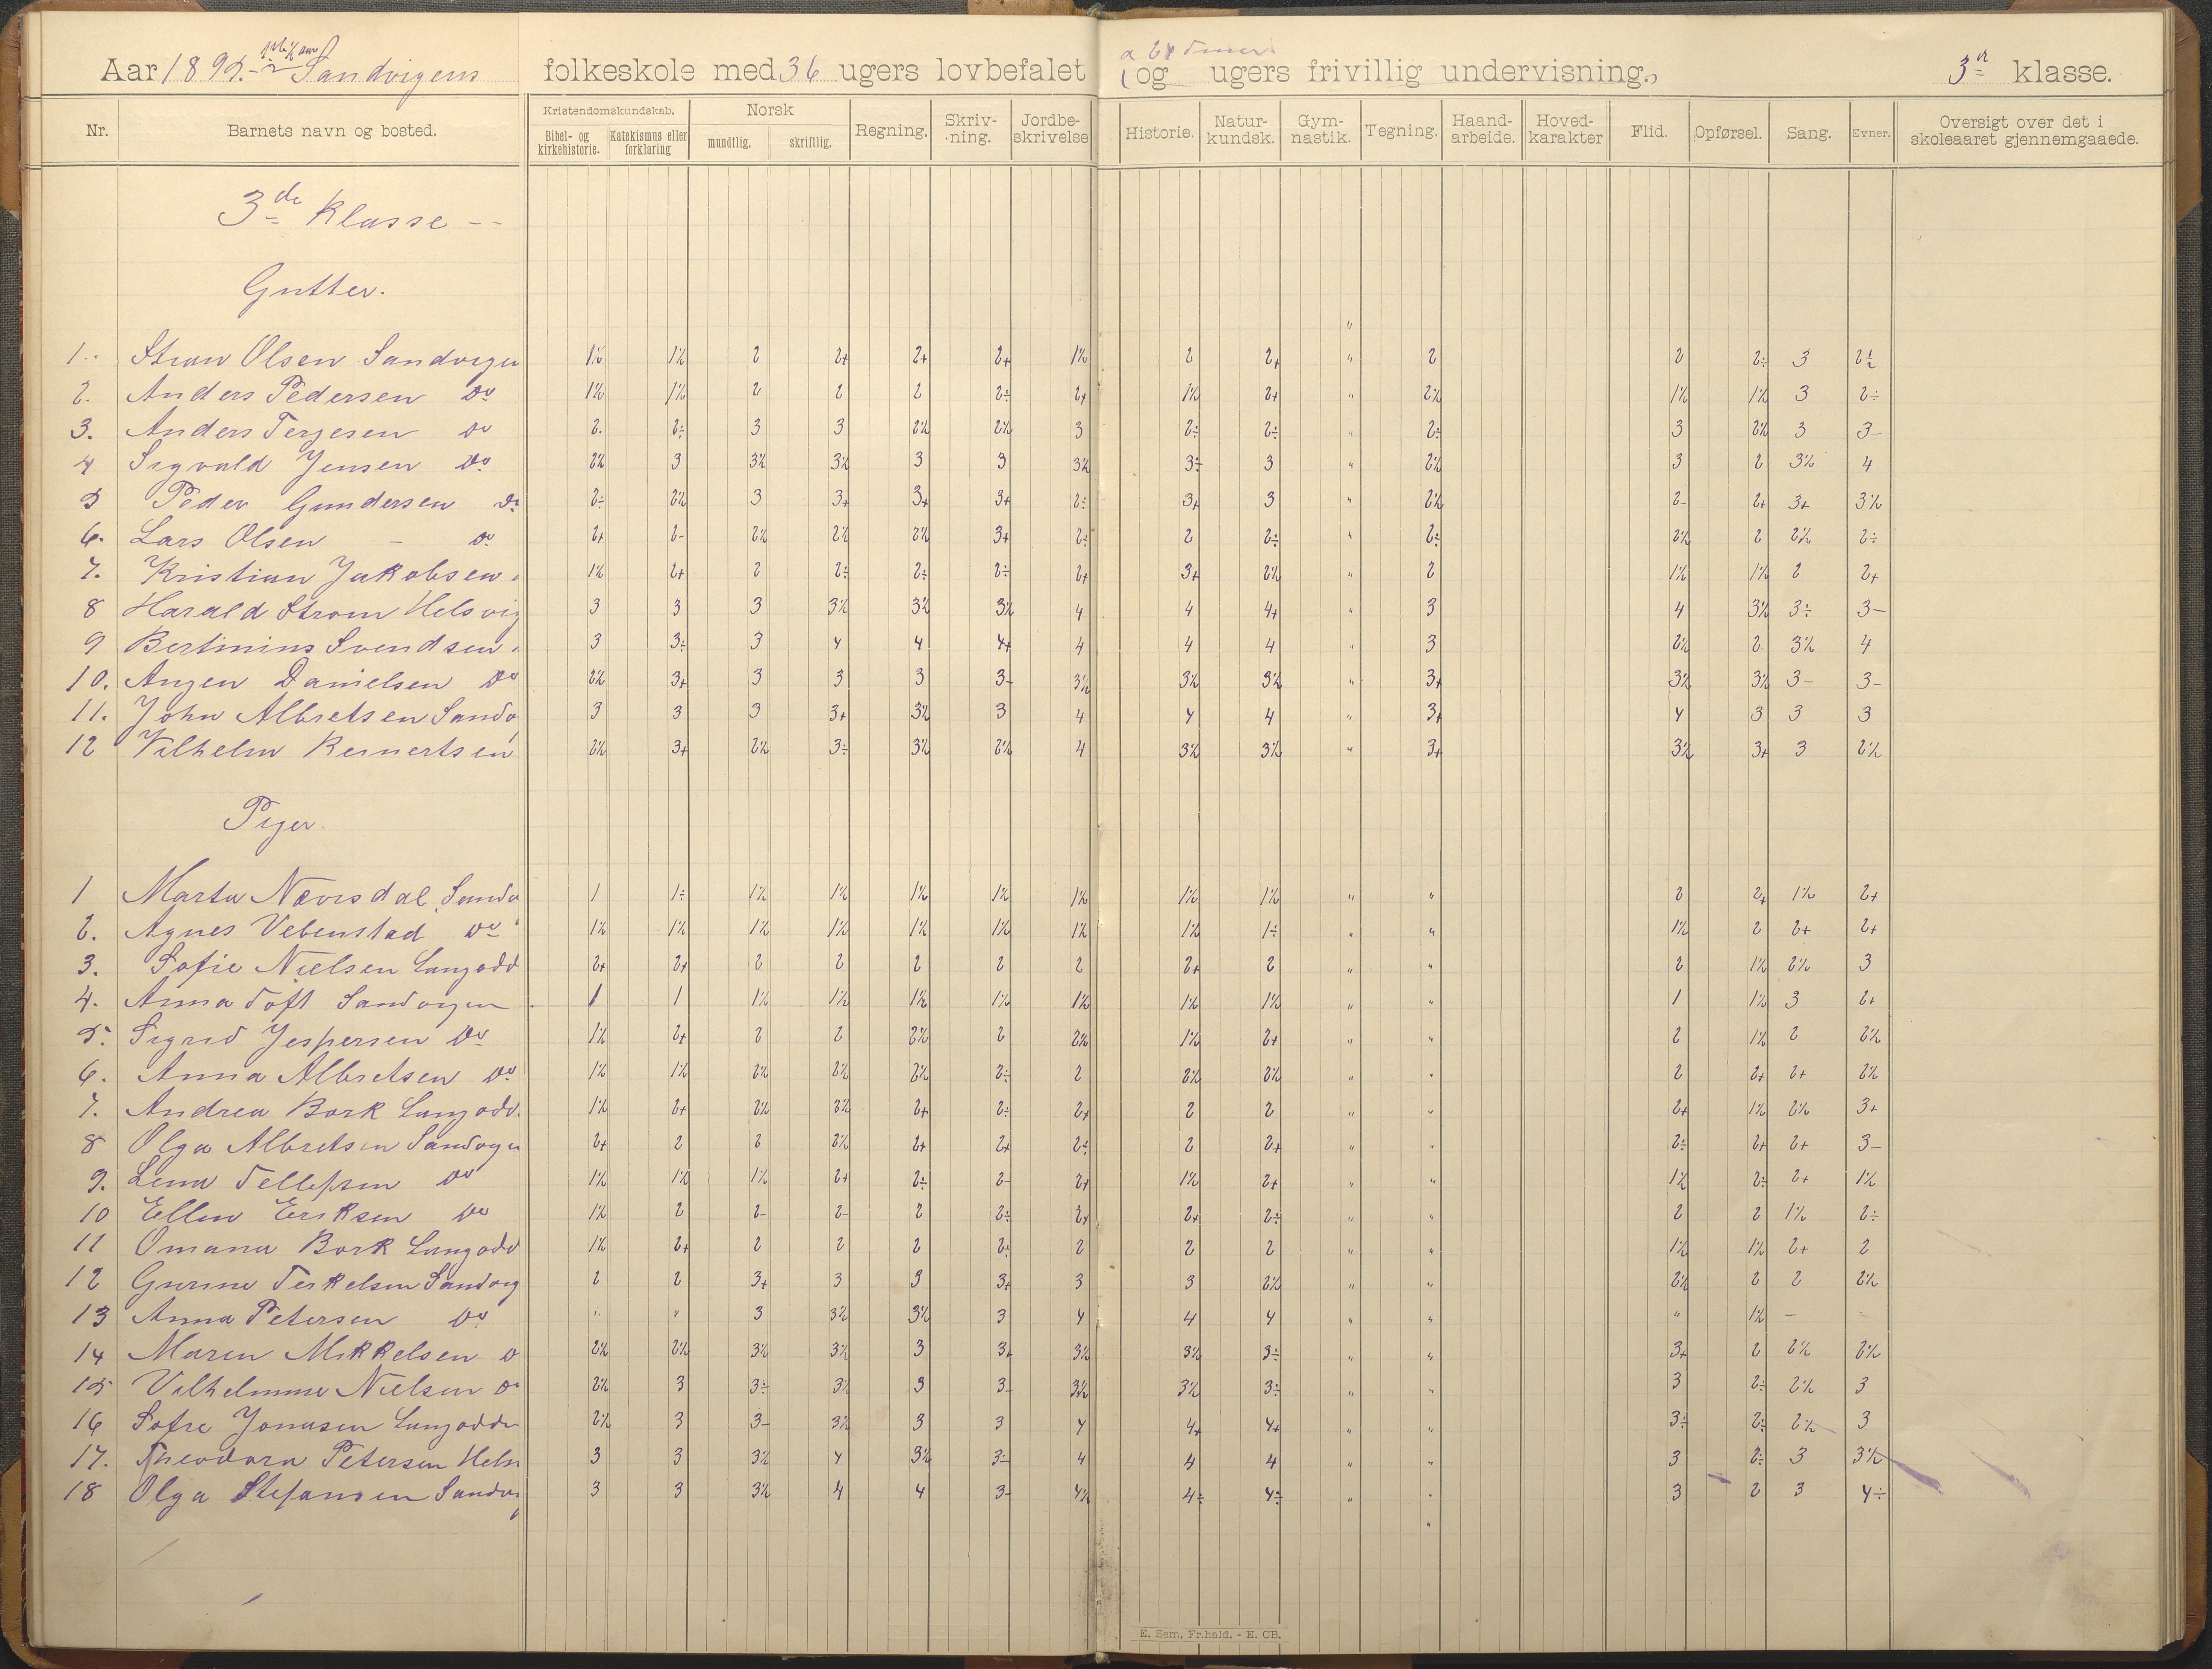 Aar 1895.- Sandvigens folkeskole med 36 ugers lovbefalet (og ugers frivillig undervisning.) 3die klasse.
Nr. Barnets navn og bosted. Kristendomskundskab. Bibel- og kirkehistorie. Katekismus eller forklaring Norsk mundtlig. skriftlig. Regning. Skriv-ning. Jordbe-skrivelse Historie. Natur-kundsk. Gym-nastik. Tegning. Haand-arbeide. Hoved-karakter Flid. Opførsel. Sang. Evner. Oversigt over det i skoleaaret gjennemgaaede.
3de Klasse --
Gutter.
"
1. Olsen Sandvigen 1½ 1½ 2 2+ 2+ 2+ 1½ 2 2+ " 2 2 2÷ 3 2½
2. Anders Pedersen Do 1½ 1½ 2 2 2 2÷ 2+ 1½ 2+ " 2½ 1½ 1½ 3 2÷
3. Anders Terjesen Do 2. 2÷ 3 3 2½ 2½ 3 2÷ 2÷ " 2÷ 3 2½ 3 3-
4 Sigvald Jensen Do 2½ 3 3½ 3½ 3 3 3½ 3÷ 3 " 2½ 3 2 3½ 4
5 Peder Gundersen Do 2÷ 2½ 3 3+ 3+ 3+ 2÷ 3+ 3 " 2½ 2- 2+ 3+ 3½
6. Lars Olsen - Do 2+ 2- 2½ 2½ 2½ 3+ 2÷ 2 2÷ " 2÷ 2½ 2 2½ 2÷
7. Kristian Jakobsen " 1½ 2+ 2 2÷ 2÷ 2÷ 2+ 3+ 2½ " 2 1½ 1½ 2 2+
8 Harald Strøm Helsvig 3 3 3 3½ 3½ 3½ 4 4 4+ " 3 4 3½ 3÷ 3-
9 Bertinius Svendsen " 3 3÷ 3 4 4 4+ 4 4 4 " 3 2½ 2 3½ 4
10. Danielsen Do 2½ 3+ 3 3 3 3- 3½ 3½ 3½ " 3+ 3½ 3½ 3- 3-
11. John Albretsen Sandv 3 3 3 3+ 3½ 3 4 4 4 " 3+ 4 3 3 3
12 Vilhelm Reinertsen 2½ 3+ 2½ 3÷ 3½ 2½ 4 3½ 3½ " 3+ 3½ 3+ 3 2½
Piger.
1 Marta Nævisdal, Sandv 1 1÷ 1½ 1½ 1½ 1½ 1½ 1½ 1½ " " 2 2+ 1½ 2+
2. Agnes Vebenstad Do 1½ 1½ 1½ 1½ 1½ 1½ 1½ 1½ 1÷ " " 1½ 2 2+ 2+
3. Sofie Nielsen Langodd 2+ 2+ 2 2 2 2 2 2+ 2 " " 2 1½ 2½ 3
4. Anna Toft Sandvigen 1 1 1½ 1½ 1½ 1½ 1½ 1½ 1½ " " 1 1½ 3 2+
5. Sigrid Jespersen Do 1½ 2+ 2 2 2½ 2 2½ 1½ 2+ " " 2 1½ 2 2½
6. Anna Albretsen Do 1½ 1½ 2½ 2½ 2½ 2÷ 2 2½ 2½ " " 2 2+ 2+ 2½
7. Andrea Bork Langodd. 1½ 2+ 2½ 2½ 2+ 2÷ 2+ 2 2 " " 2+ 1½ 2½ 3+
8 Olga Albretsen Sandvige 2+ 2 2 2½ 2+ 2+ 2÷ 2 2+ " " 2÷ 2+ 2+ 3-
9. Lena Tellefsen Do 1½ 1½ 1½ 2+ 2÷ 2- 2+ 1½ 2+ " " 1½ 2÷ 2+ 1½
10 Ellen Eriksen Do 1½ 2 2- 2- 2 2÷ 2+ 2+ 2÷ " " 2 2 1½ 2÷
11 Omana Bork Langodd 1½ 2+ 2 2 2 2÷ 2 2 2 " " 1½ 1½ 2+ 2
12 Gurine Terkelsen Sandvig 2 2 3+ 3 3 3+ 3 3 2½ " " 2½ 2 2 2½
13 Anna Petersen Do " " 3 3½ 3½ 3 4 4 4 " " " 1½ -
14 Maren Mikkelsen D 2½ 2½ 3½ 3½ 3 3+ 3½ 3½ 3÷ " " 3+ 2 2½ 2½
15 Vilhelmine Nielsen Do 2½ 3 3÷ 3½ 3 3- 3½ 3½ 3÷ " " 3 2÷ 2½ 3
16 Sofie Jonasen Langodde 2½ 3 3- 3½ 3 3 4 4+ 4+ " " 3÷ 2÷ 2½ 3
17. Theodora Petersen Hels 3 3 3½ 4 3½ 3- 4 4 4 " " 3 2÷ 3 3½
18 Olga Stefansen Sandvig 3 3 3½ 4 4 3- 4½ 4÷ 4÷ " " 3 2 3 4÷
"
E. Sem, Fr.hald. - E. CB.